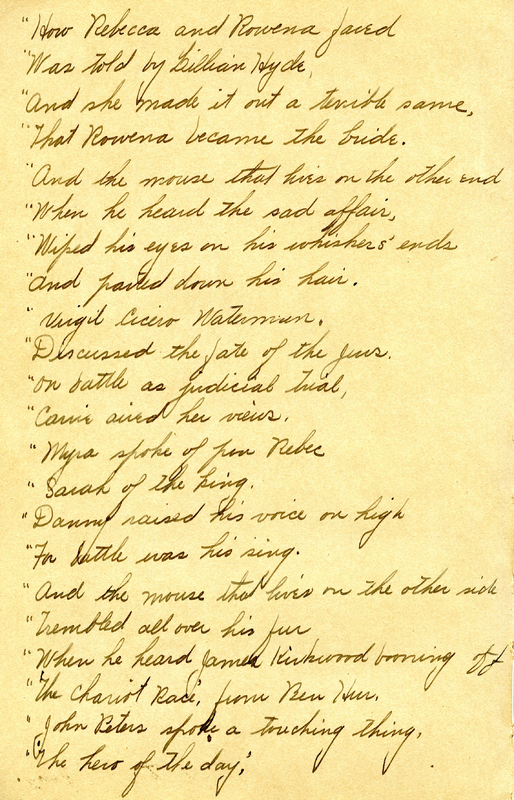 "How Rebecca and Rowena fared
"Was told by Lillian Hyde,
"And she made it out a terrible same,
"That Rowena became the bride.
"And the mouse that lives on the other end
"When he heard the sad affair,
"Wiped his eyes on his whiskers' ends
"And pawed down his hair.
"Virgil Cicero Waterman.
"Discussed the fate of the Jews.
"On battle as judicial trial,
"Carrie aired her views.
"Myra spoke of poor Rebec
"Sarah of the king.
"Danny raised his voice on high
"For battle was his sing.
"And the mouse that lives on the other side
"Trembled all over his fur
"When he heard James Kirkwood booming off
"The Chariot Race, from Ben Hur.
"John Peters spoke a touching thing,
"The hero of the day,"